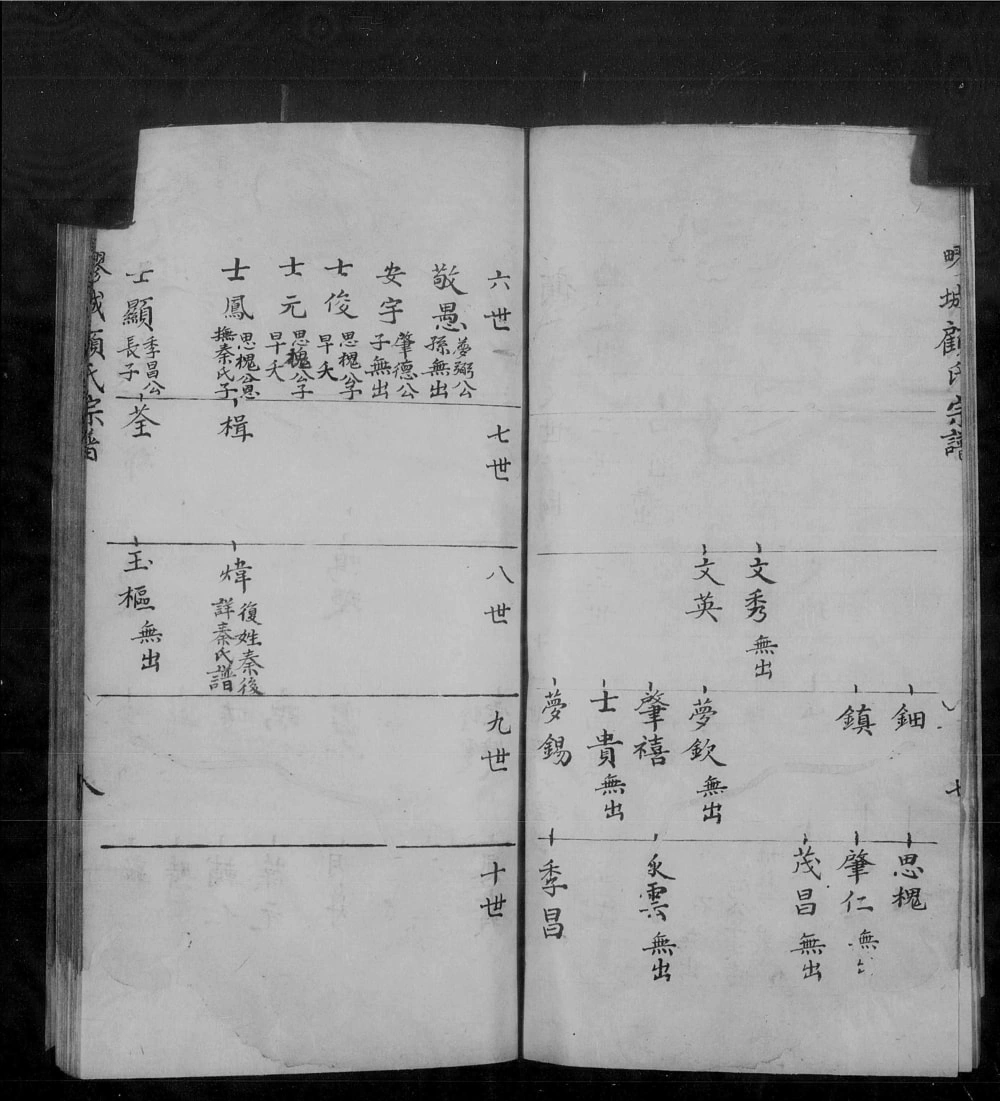 城顧氏宗譜
七
鈿
思槐
鎮
肇仁 無
茂昌 無出
文秀 無出
文英
夢欽 無出
肇禧
永雲 無出
士貴 無出
夢錫
季昌
六世
七世
八世
九世
十世
敬愚 夢弼公
孫無出
安宇 肇德公
子無出
士俊 思槐公子
早夭
士元 思槐公子
早夭
士鳳 思槐公恩
撫秦氏子
楫
煒 復姓秦後
詳秦氏譜
士顯 季昌公
長子
荃
玉樞 無出
城顧氏宗譜
八